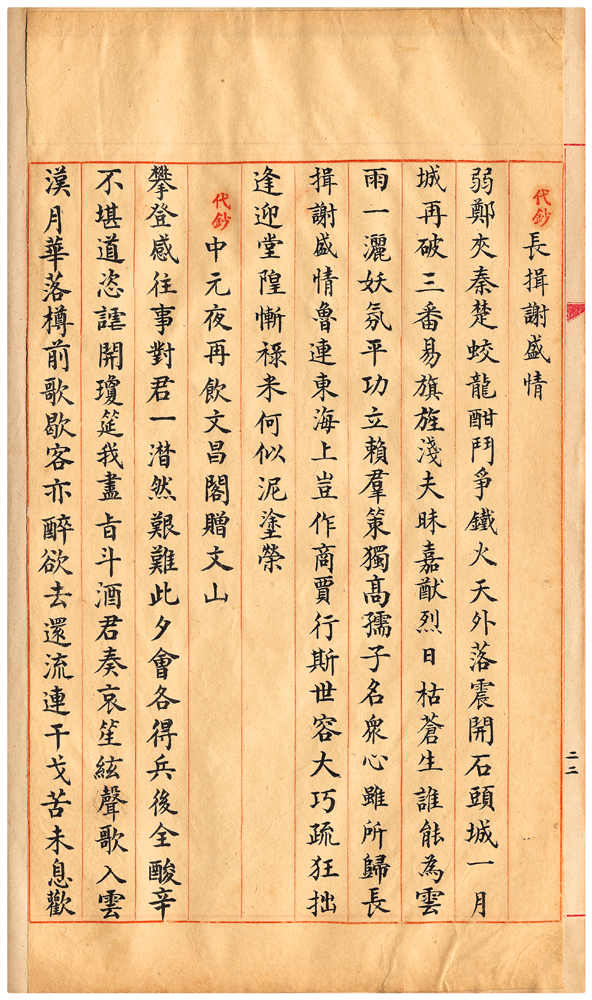 代鈔 長揖謝盛情
弱鄭夾秦楚蛟龍酣鬥爭鐵火天外落震開石頭城一月
城再破三番易旗旌淺夫昧嘉猷烈日枯蒼生誰能為雲
雨一灑妖氛平功立賴羣策獨高孺子名衆心雖所歸長
揖謝盛情魯連東海上豈作商賈行斯世容大巧疏狂拙
逢迎堂隍慚祿米何似泥塗榮
代鈔 中元夜再飲文昌閣贈文山
攀登感往事對君一潸然艱難此夕會各得兵後全酸辛
不堪道恣謔開瓊筵我盡旨斗酒君奏哀笙絃聲歌入雲
漠月華落樽前歌歇客亦醉欲去還流連干戈苦未息歡
二二